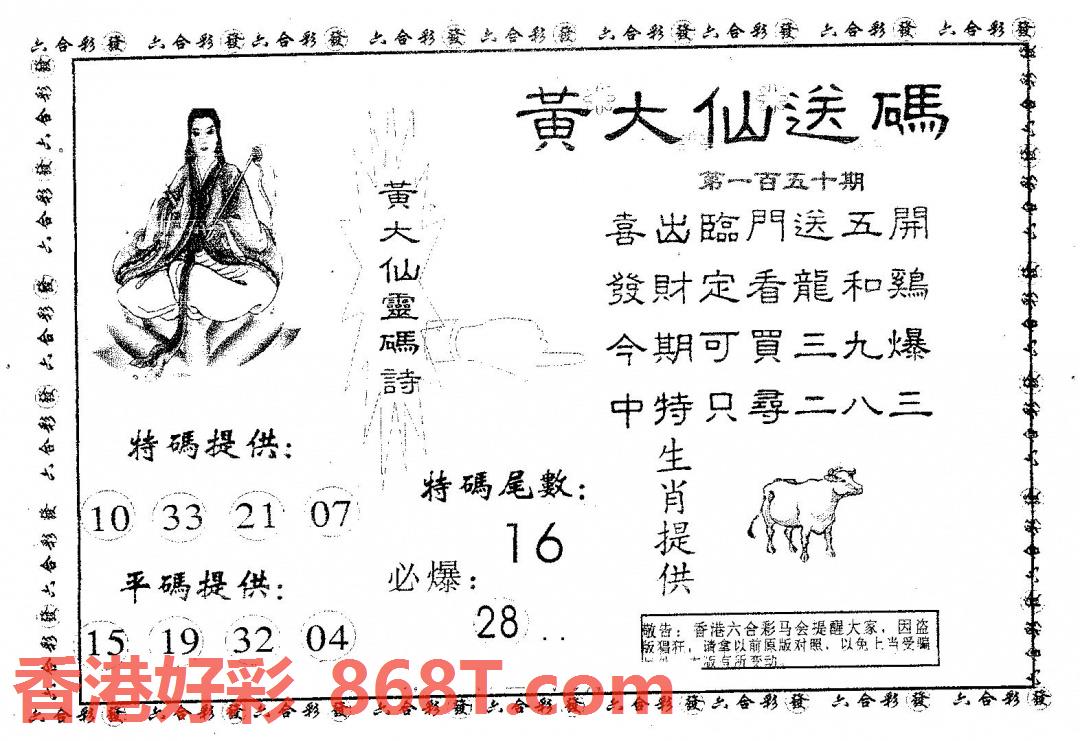 六合彩發 六合彩發 六合彩發 六合彩發 六合彩發 六合彩發 六合彩發 六合彩發 六合彩發
黃大仙送碼
第一百五十期
喜出臨門送五開
發財定看龍和鷄
今期可買三九爆
中特只尋二八三
黃大仙靈碼詩
特碼提供:
10 33 21 07
平碼提供:
15 19 32 04
特碼尾數:
16
必爆:
28 ..
生肖提供
敬告:香港六合彩马会提醒大家,因盗
版猖狂,请拿以前原版对照,以免上当受骗
香港好彩 868T.com
六合彩發 六合彩發 六合彩發 六合彩發 六合彩發 六合彩發 六合彩發 六合彩發 六合彩發